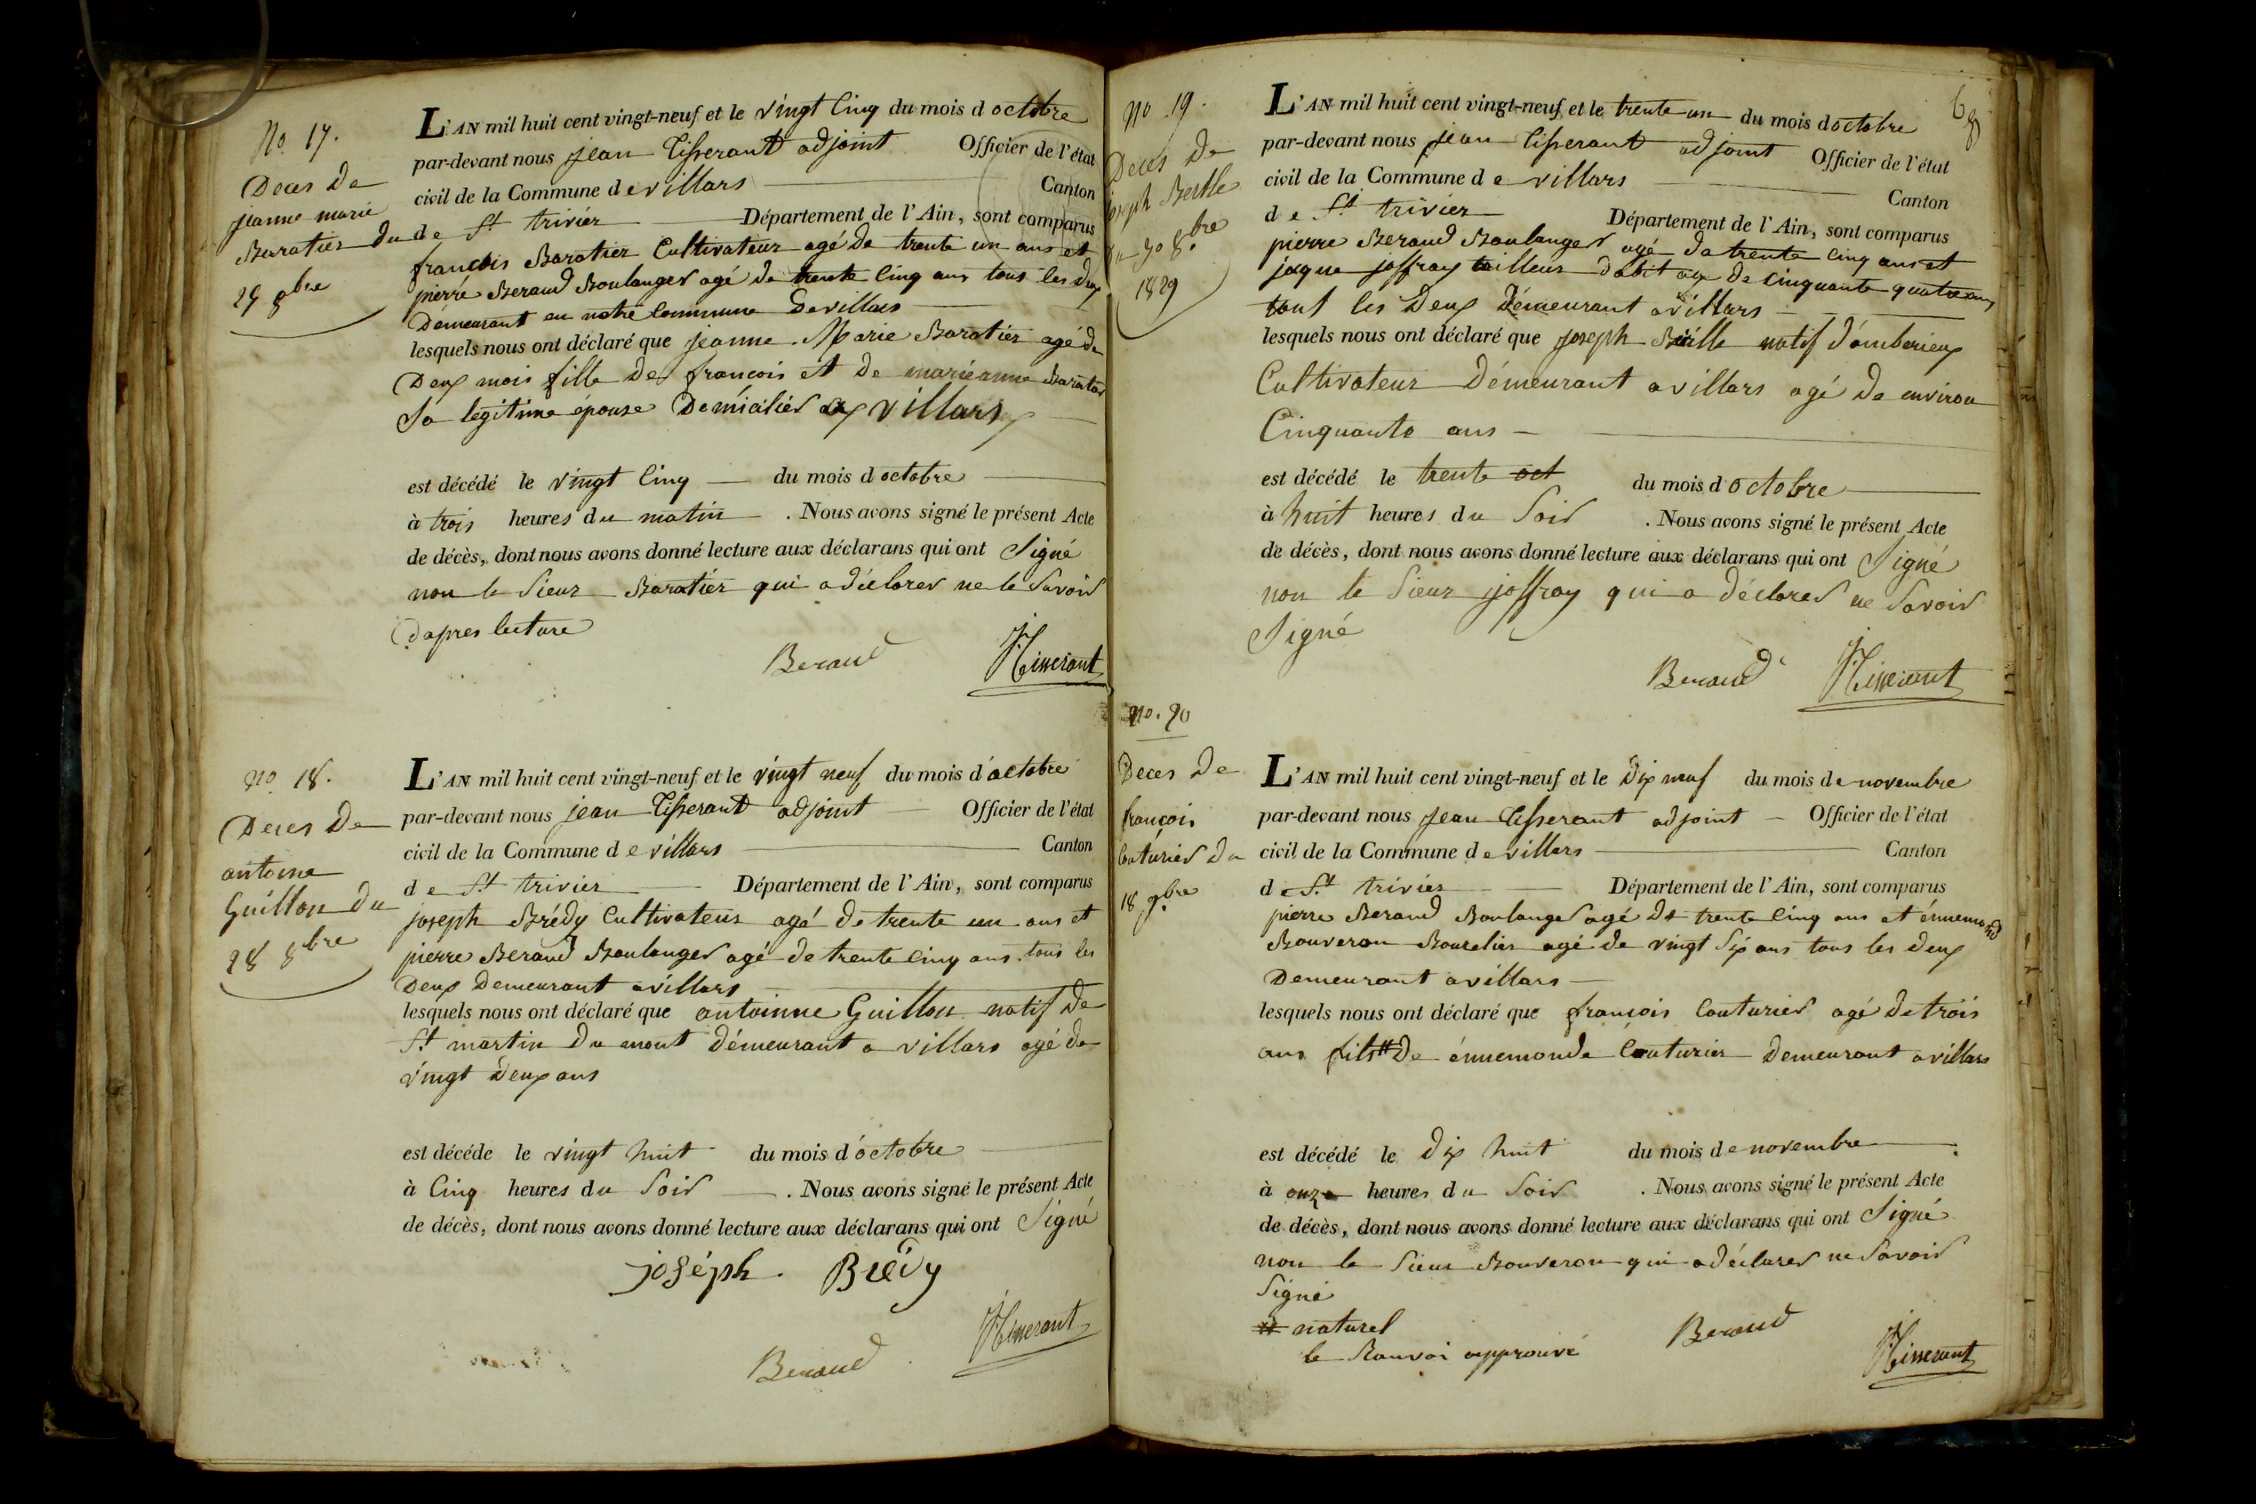 No 17.
Deces De
jeanne marie
Baratier du
25 8bre
L'AN mil huit cent vingt-neuf et le vingt cinq du mois d octobre
par-devant nous jean Tisserant adjoint Officier de l'état
civil de la Commune de villars Canton
de St trivier Département de l'Ain, sont comparus
francois Baratier Cultivateur agé de trente un ans et
pierre Beraud Boulanger agé de trente cinq ans tous les deux
Demeurant en notre commune de villars
lesquels nous ont déclaré que jeanne Marie Baratier agé de
Deux mois fille de francois et de marieanne Baratier
Sa legitime épouse Demicilier a villars
est décédé le vingt cinq du mois d octobre
à trois heures du matin . Nous avons signé le présent Acte
de décès, dont nous avons donné lecture aux déclarans qui ont Signé
non le Sieur Baratier qui a déclarer ne le Savoir
Dapres lecture
Beraud JTisserant
No 18.
Deces De
antoine
Guillon du
28 8bre
L'AN mil huit cent vingt-neuf et le vingt neuf du mois d'octobre
par-devant nous jean Tisserant adjoint Officier de l'état
civil de la Commune de villars Canton
de St trivier Département de l'Ain, sont comparus
joseph Brédy Cultivateur agé de trente un ans et
pierre Beraud Boulanger agé de trente cinq ans tous les
Deux Demeurant a villars
lesquels nous ont déclaré que antoinne Guillon natif de
St martin du mont démeurant a villars agé de
vingt deux ans
est décéde le vingt huit du mois d'octobre
à Cinq heures du Soir . Nous avons signé le présent Acte
de décès, dont nous avons donné lecture aux déclarans qui ont Signé
joséph. Brédy
Beraud JTisserant
68
No 19.
Deces De
joseph
du 30 8bre
1829
L'AN mil huit cent vingt-neuf et le trente un du mois doctobre
par-devant nous jean Tisserant adjoint Officier de l'état
civil de la Commune de villars Canton
de St trivier Département de l'Ain, sont comparus
pierre Beraud Boulanger agé de trente cinq ans et
jaque joffray tailleur dabit agé de cinquante quatre ans
tout les Deux Démeurant a villars
lesquels nous ont déclaré que joseph natif d'amberieux
Cultivateur Démeurant a villars agé de environ
Cinquante ans
est décédé le trente oct du mois d octobre
à huit heures du Soir . Nous avons signé le présent Acte
de décès, dont nous avons donné lecture aux déclarans qui ont Signé
non le Sieur joffray qui a déclarer ne Savoir
Signé
Beraud JTisserant
No. 20
Deces De
francois
Couturier du
18 9bre
L'AN mil huit cent vingt-neuf et le Dix neuf du mois de novembre
par-devant nous jean Tisserant adjoint Officier de l'état
civil de la Commune de villars Canton
de St trivier Département de l'Ain, sont comparus
pierre Beraud Boulanger agé de trente cinq ans et énnemond
Bouveron Bourelier agé de vingt Six ans tous les deux
Demeurant a villars
lesquels nous ont déclaré que francois Couturier agé de trois
ans fils # de énnemonde Couturier Demeurant a villars
est décédé le Dix huit du mois de novembre
à onze heures du Soir . Nous avons signé le présent Acte
de décès, dont nous avons donné lecture aux déclarans qui ont Signé
non le Sieur Bouveron qui a déclarer ne Savoir
Signé
# naturel
le Ranvoi approuvé
Beraud JTisserant